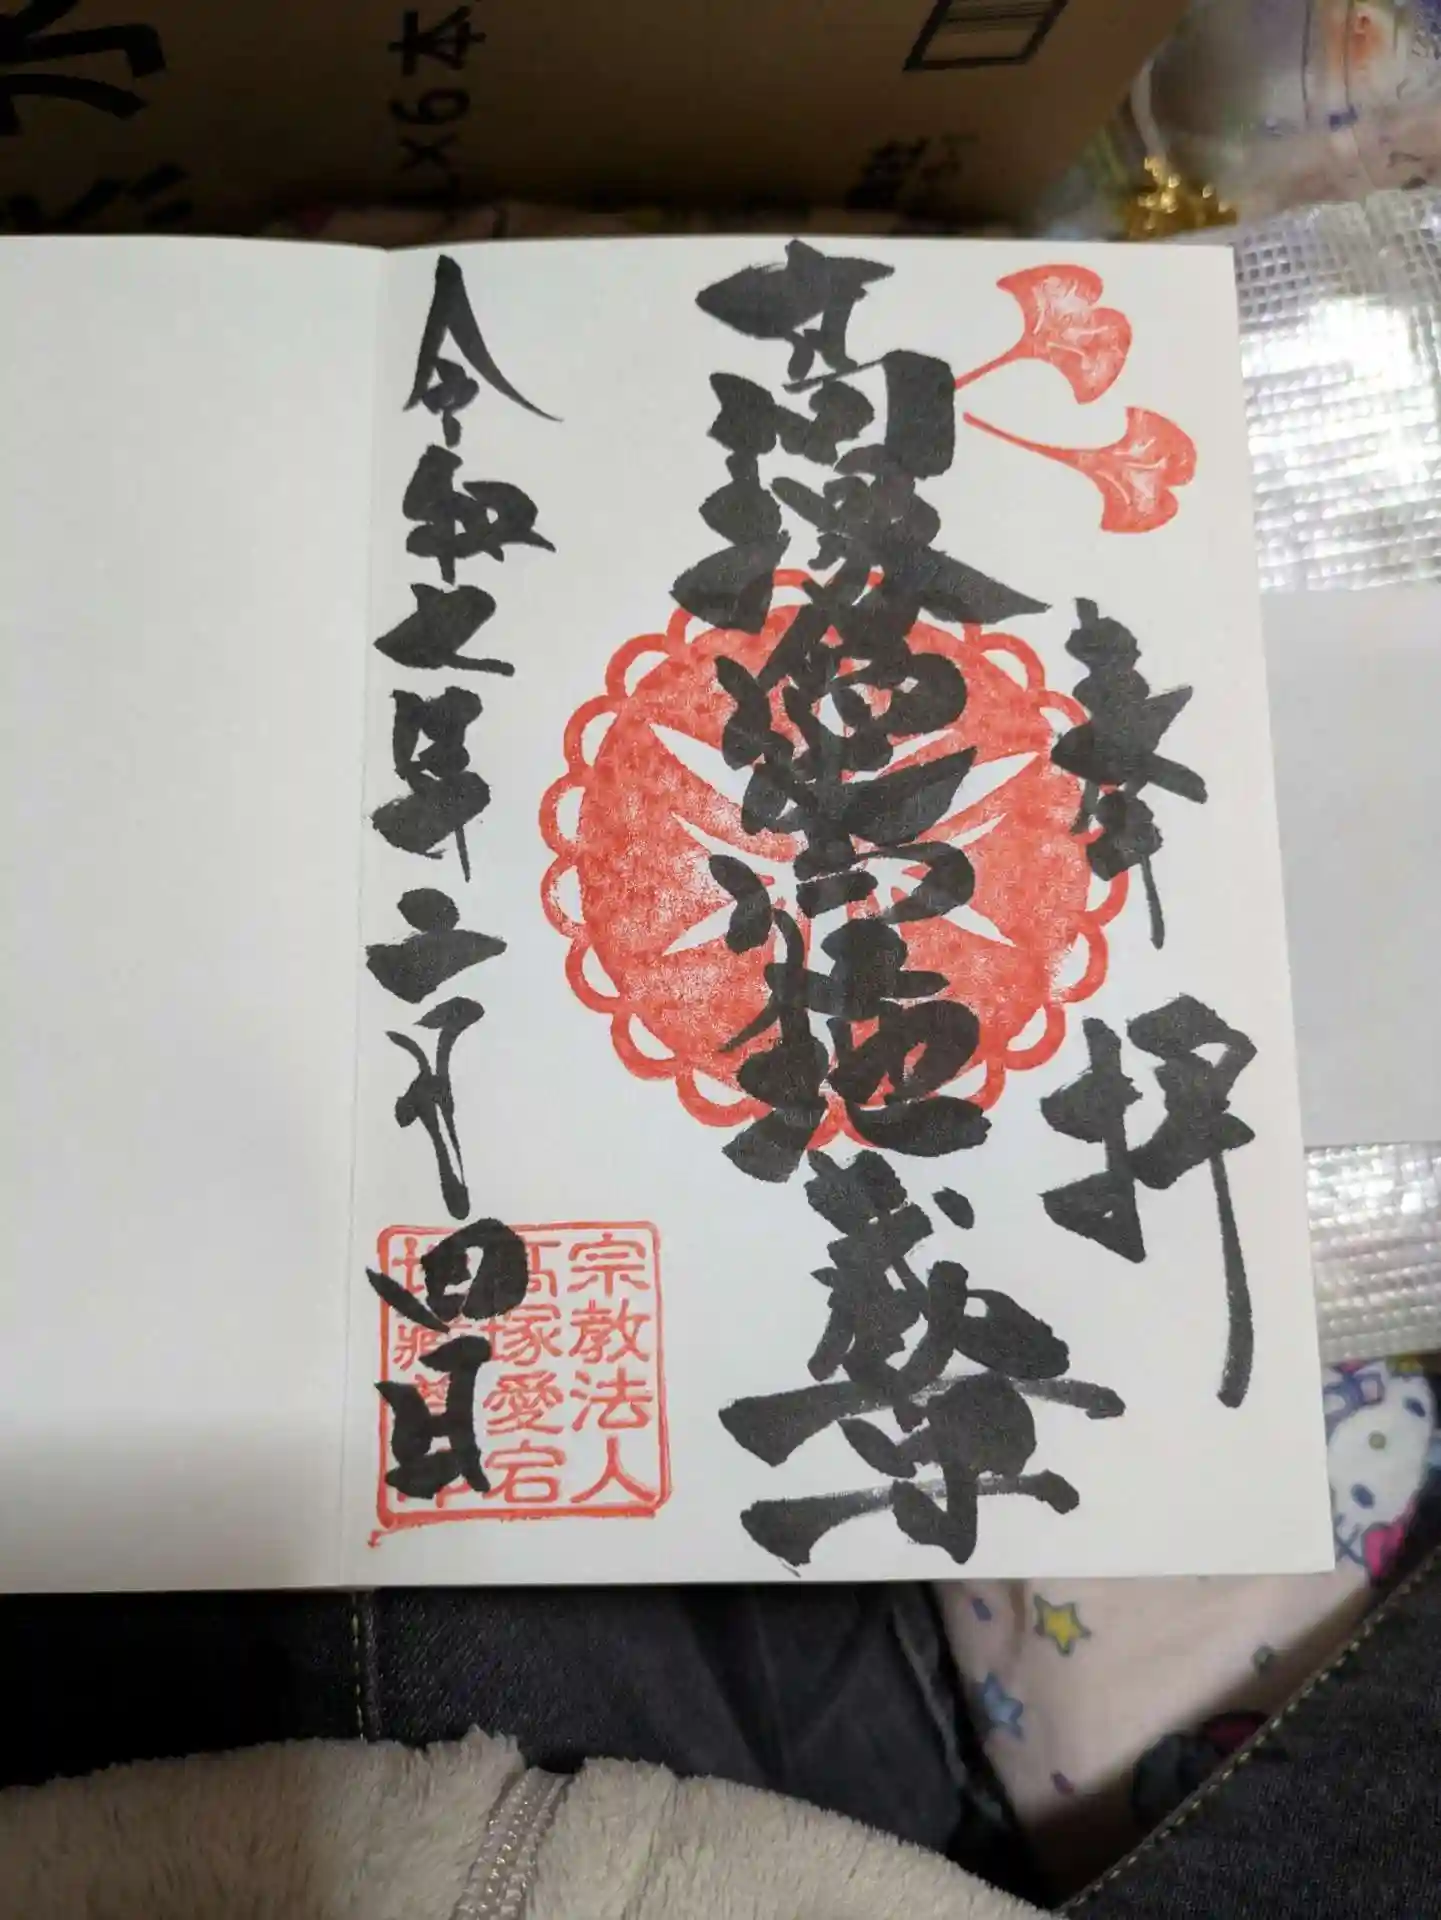 水
×6本
奉拝
高塚愛宕地蔵尊
令和七年二月四日
宗教法人
高塚愛宕
地蔵尊印